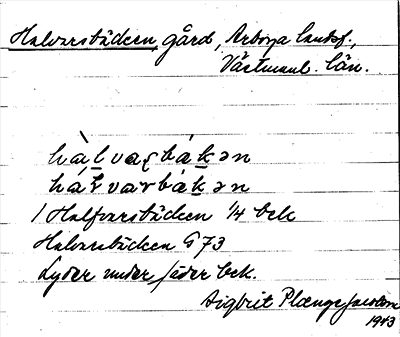 Halvarsbäcken, gård, Arboga landsf.,
Västmanl. län.
hàlvaɽbákən
hálvarbákən
1 Halfvarsbäcken 1/4 bek
Halvarsbäcken G 73
Lyder under bek.
Sigbrit Plænge Jacobson
1943